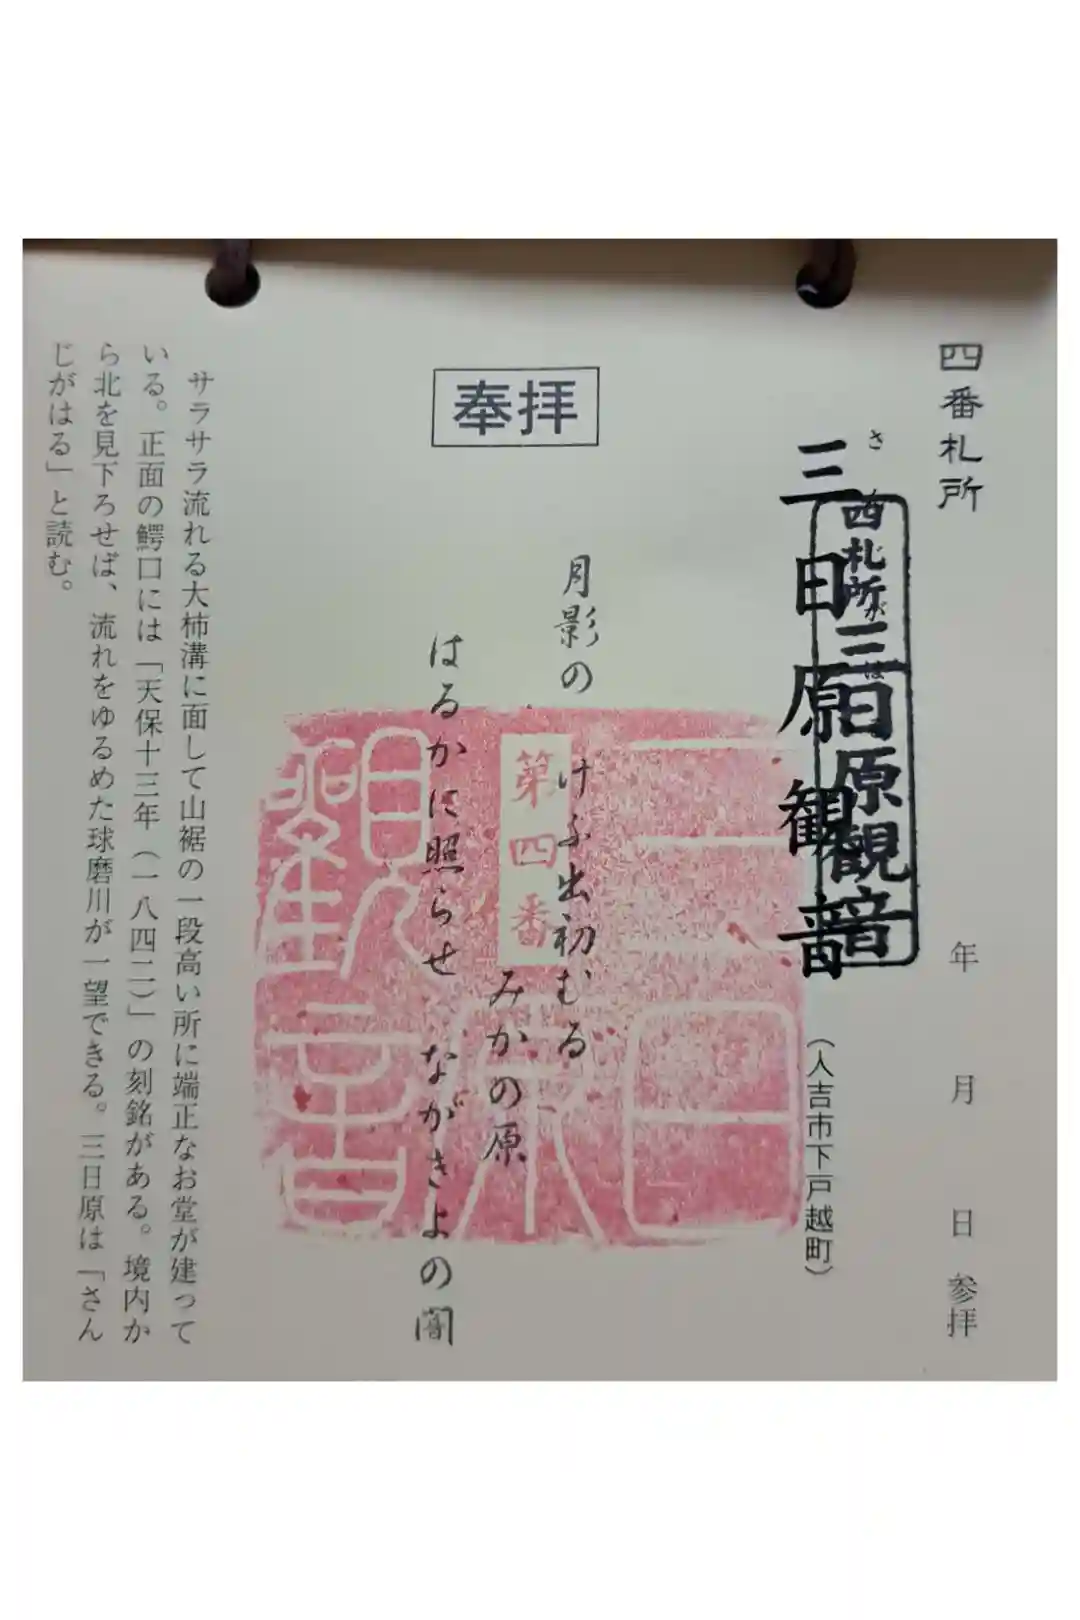 四番札所
年 月 日 参拝
さんじがはる
三日原観音
四札所 三日原觀音
(人吉市下戸越町)
奉拝
月影の けふ出初むる
みかの原
はるかに照らせ ながきよの闇
第四番
三日原觀音
サラサラ流れる大柿溝に面して山裾の一段高い所に端正なお堂が建って
いる。正面の鰐口には「天保十三年(一八四二)」の刻銘がある。境内か
ら北を見下ろせば、流れをゆるめた球磨川が一望できる。三日原は「さん
じがはる」と読む。